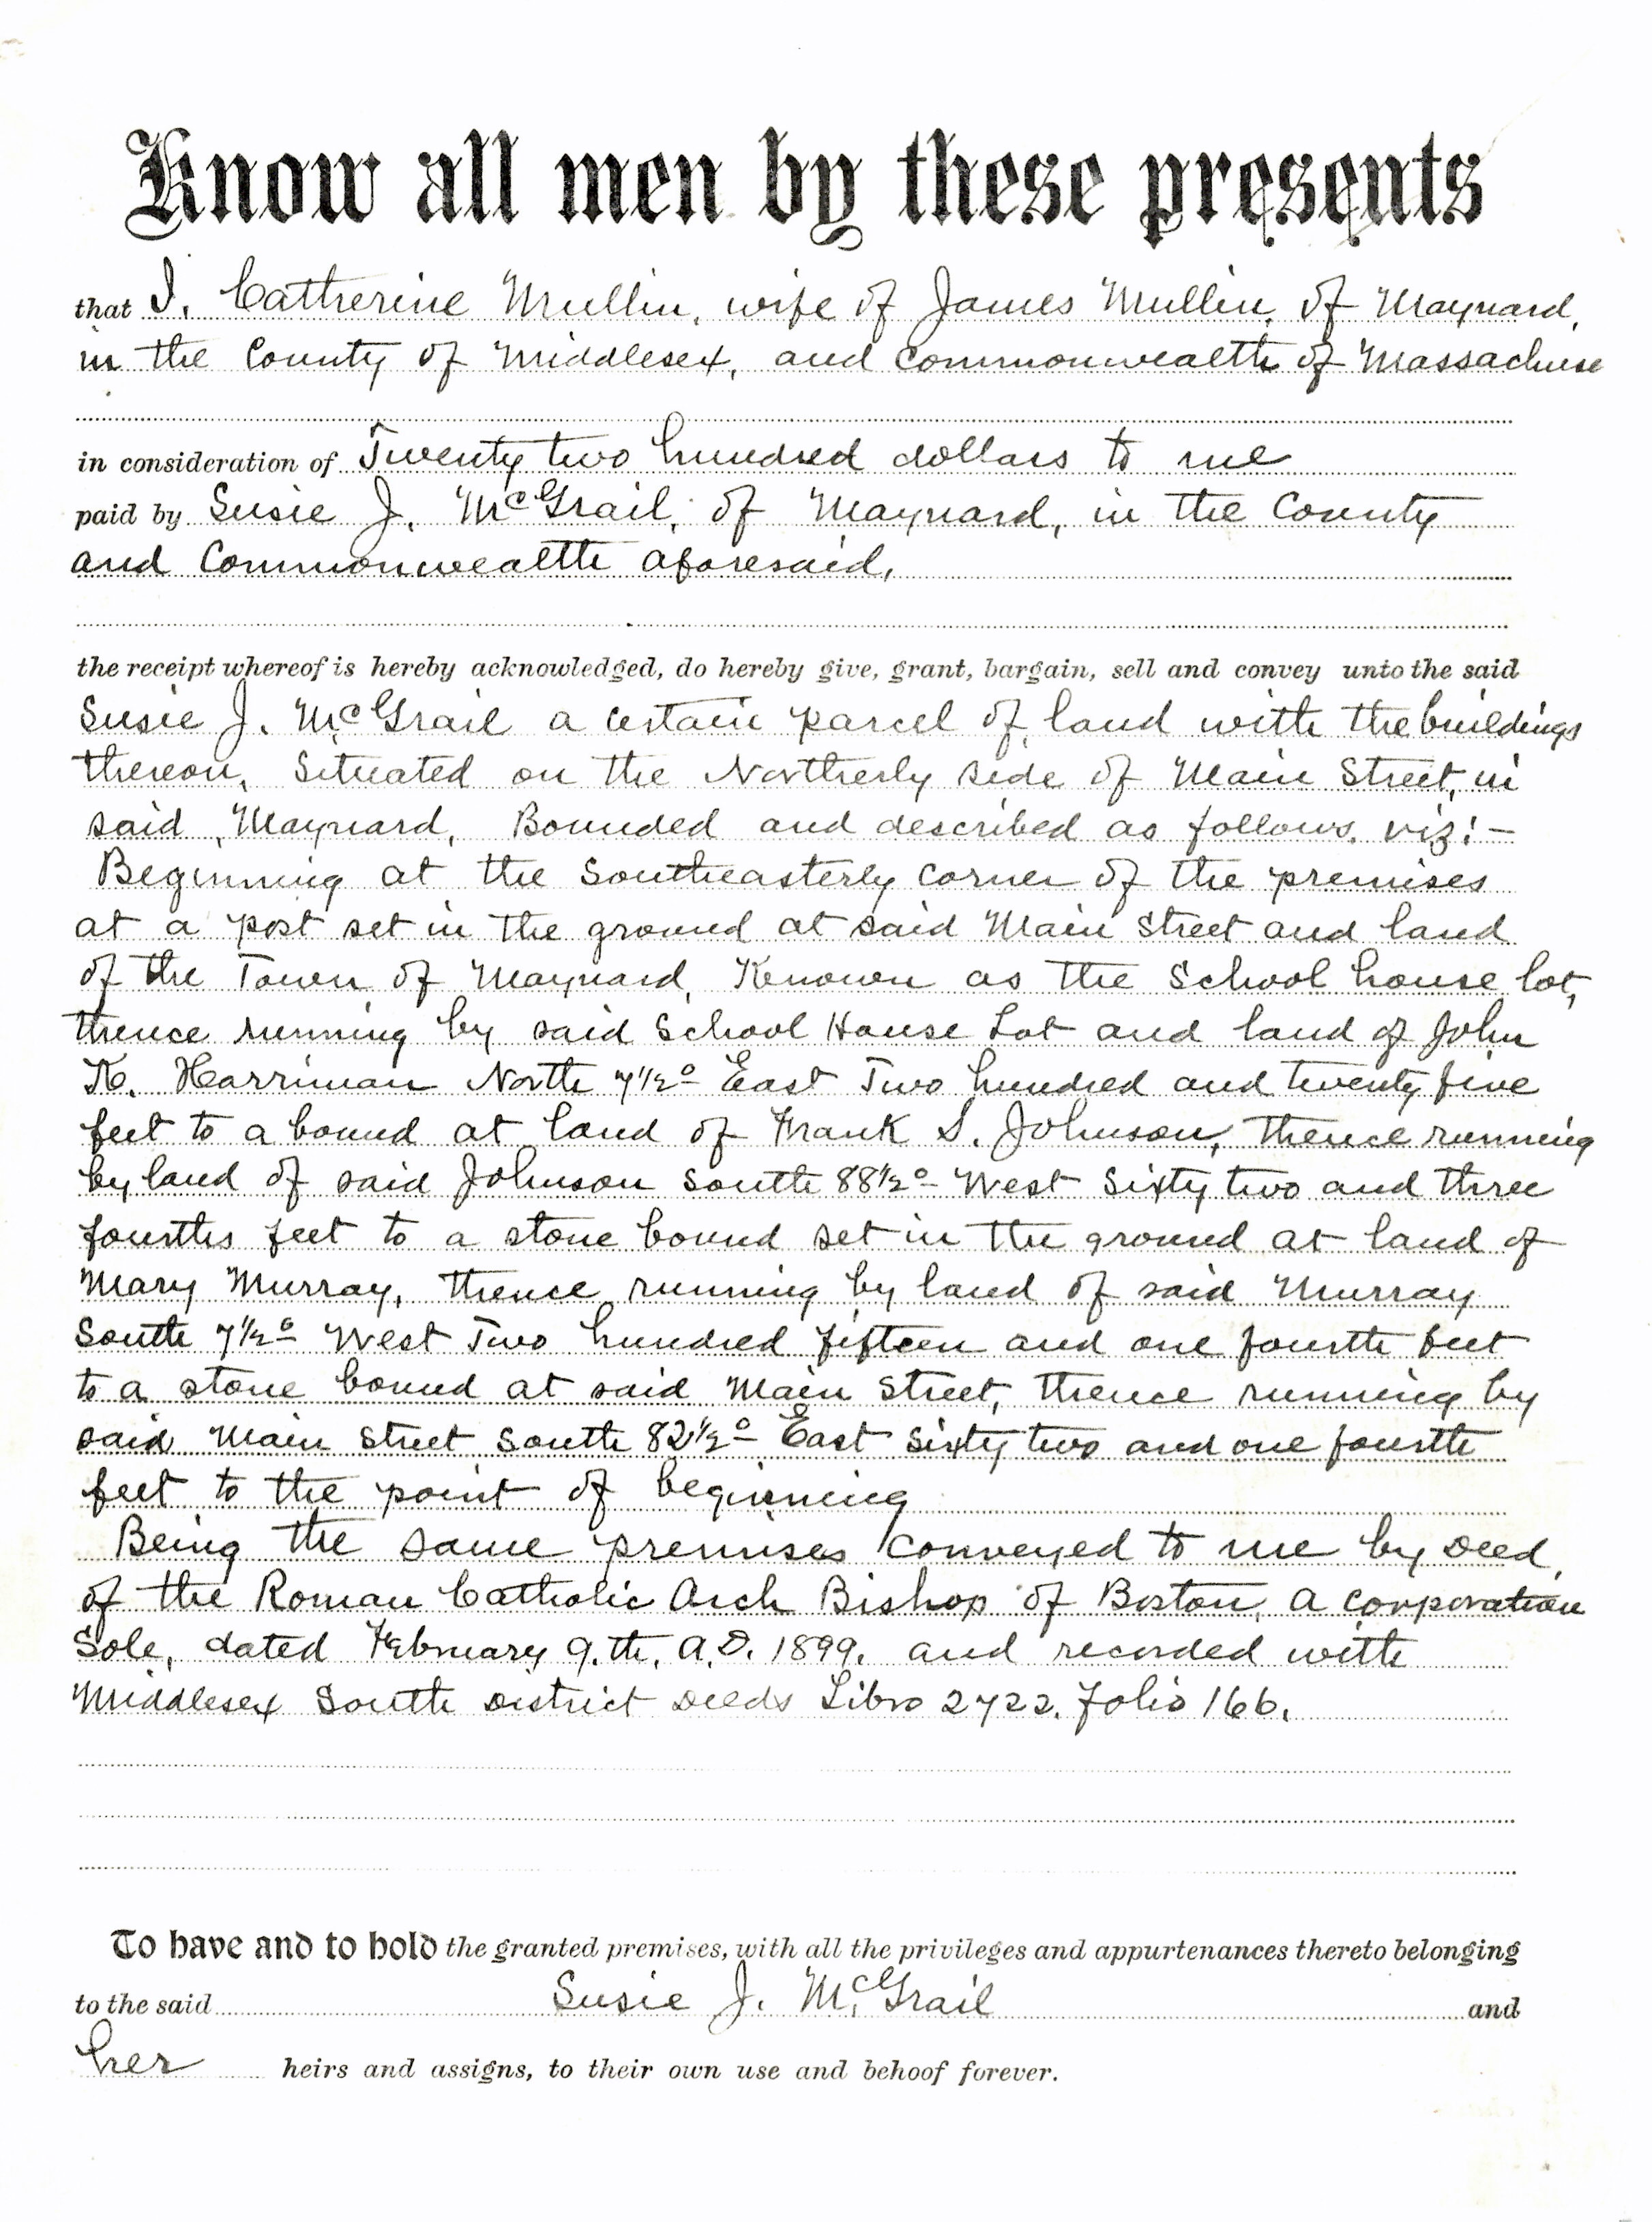 Know all men by these presents
that I. Catherine Mullin, wife of James Mullin, of Maynard,
in the County of Middlesex, and Commonwealth of Massachuse
in consideration of Twenty two hundred dollars to me
paid by Susie J. McGrail, of Maynard, in the County
and Commonwealth aforesaid,
the receipt whereof is hereby acknowledged, do hereby give, grant, bargain, sell and convey unto the said
Susie J. McGrail a certain parcel of land with the buildings
thereon, Situated on the Northerly side of Main Street, in
said Maynard, Bounded and described as follows, viz:—
Beginning at the Southeasterly corner of the premises
at a post set in the ground at said Main Street and land
of the Town of Maynard, Known as the School house lot,
thence running by said School House Lot and land of John
K. Harriman North 7½° East Two hundred and twenty five
feet to a bound at land of Frank S. Johnson, thence running
by land of said Johnson South 88½° West Sixty two and three
fourths feet to a stone bound set in the ground at land of
Mary Murray, thence running by land of said Murray
South 7½° West Two hundred fifteen and one fourth feet
to a stone bound at said Main Street, thence running by
said Main Street South 82½° East Sixty two and one fourth
feet to the point of beginning
Being the same premises conveyed to me by Deed
of the Roman Catholic Arch Bishop of Boston, a corporation
Sole, dated February 9.th. A.D. 1899. and recorded with
Middlesex South District Deeds Libro 2722. Folio 166.
To have and to hold the granted premises, with all the privileges and appurtenances thereto belonging
to the said Susie J. McGrail and
her heirs and assigns, to their own use and behoof forever.